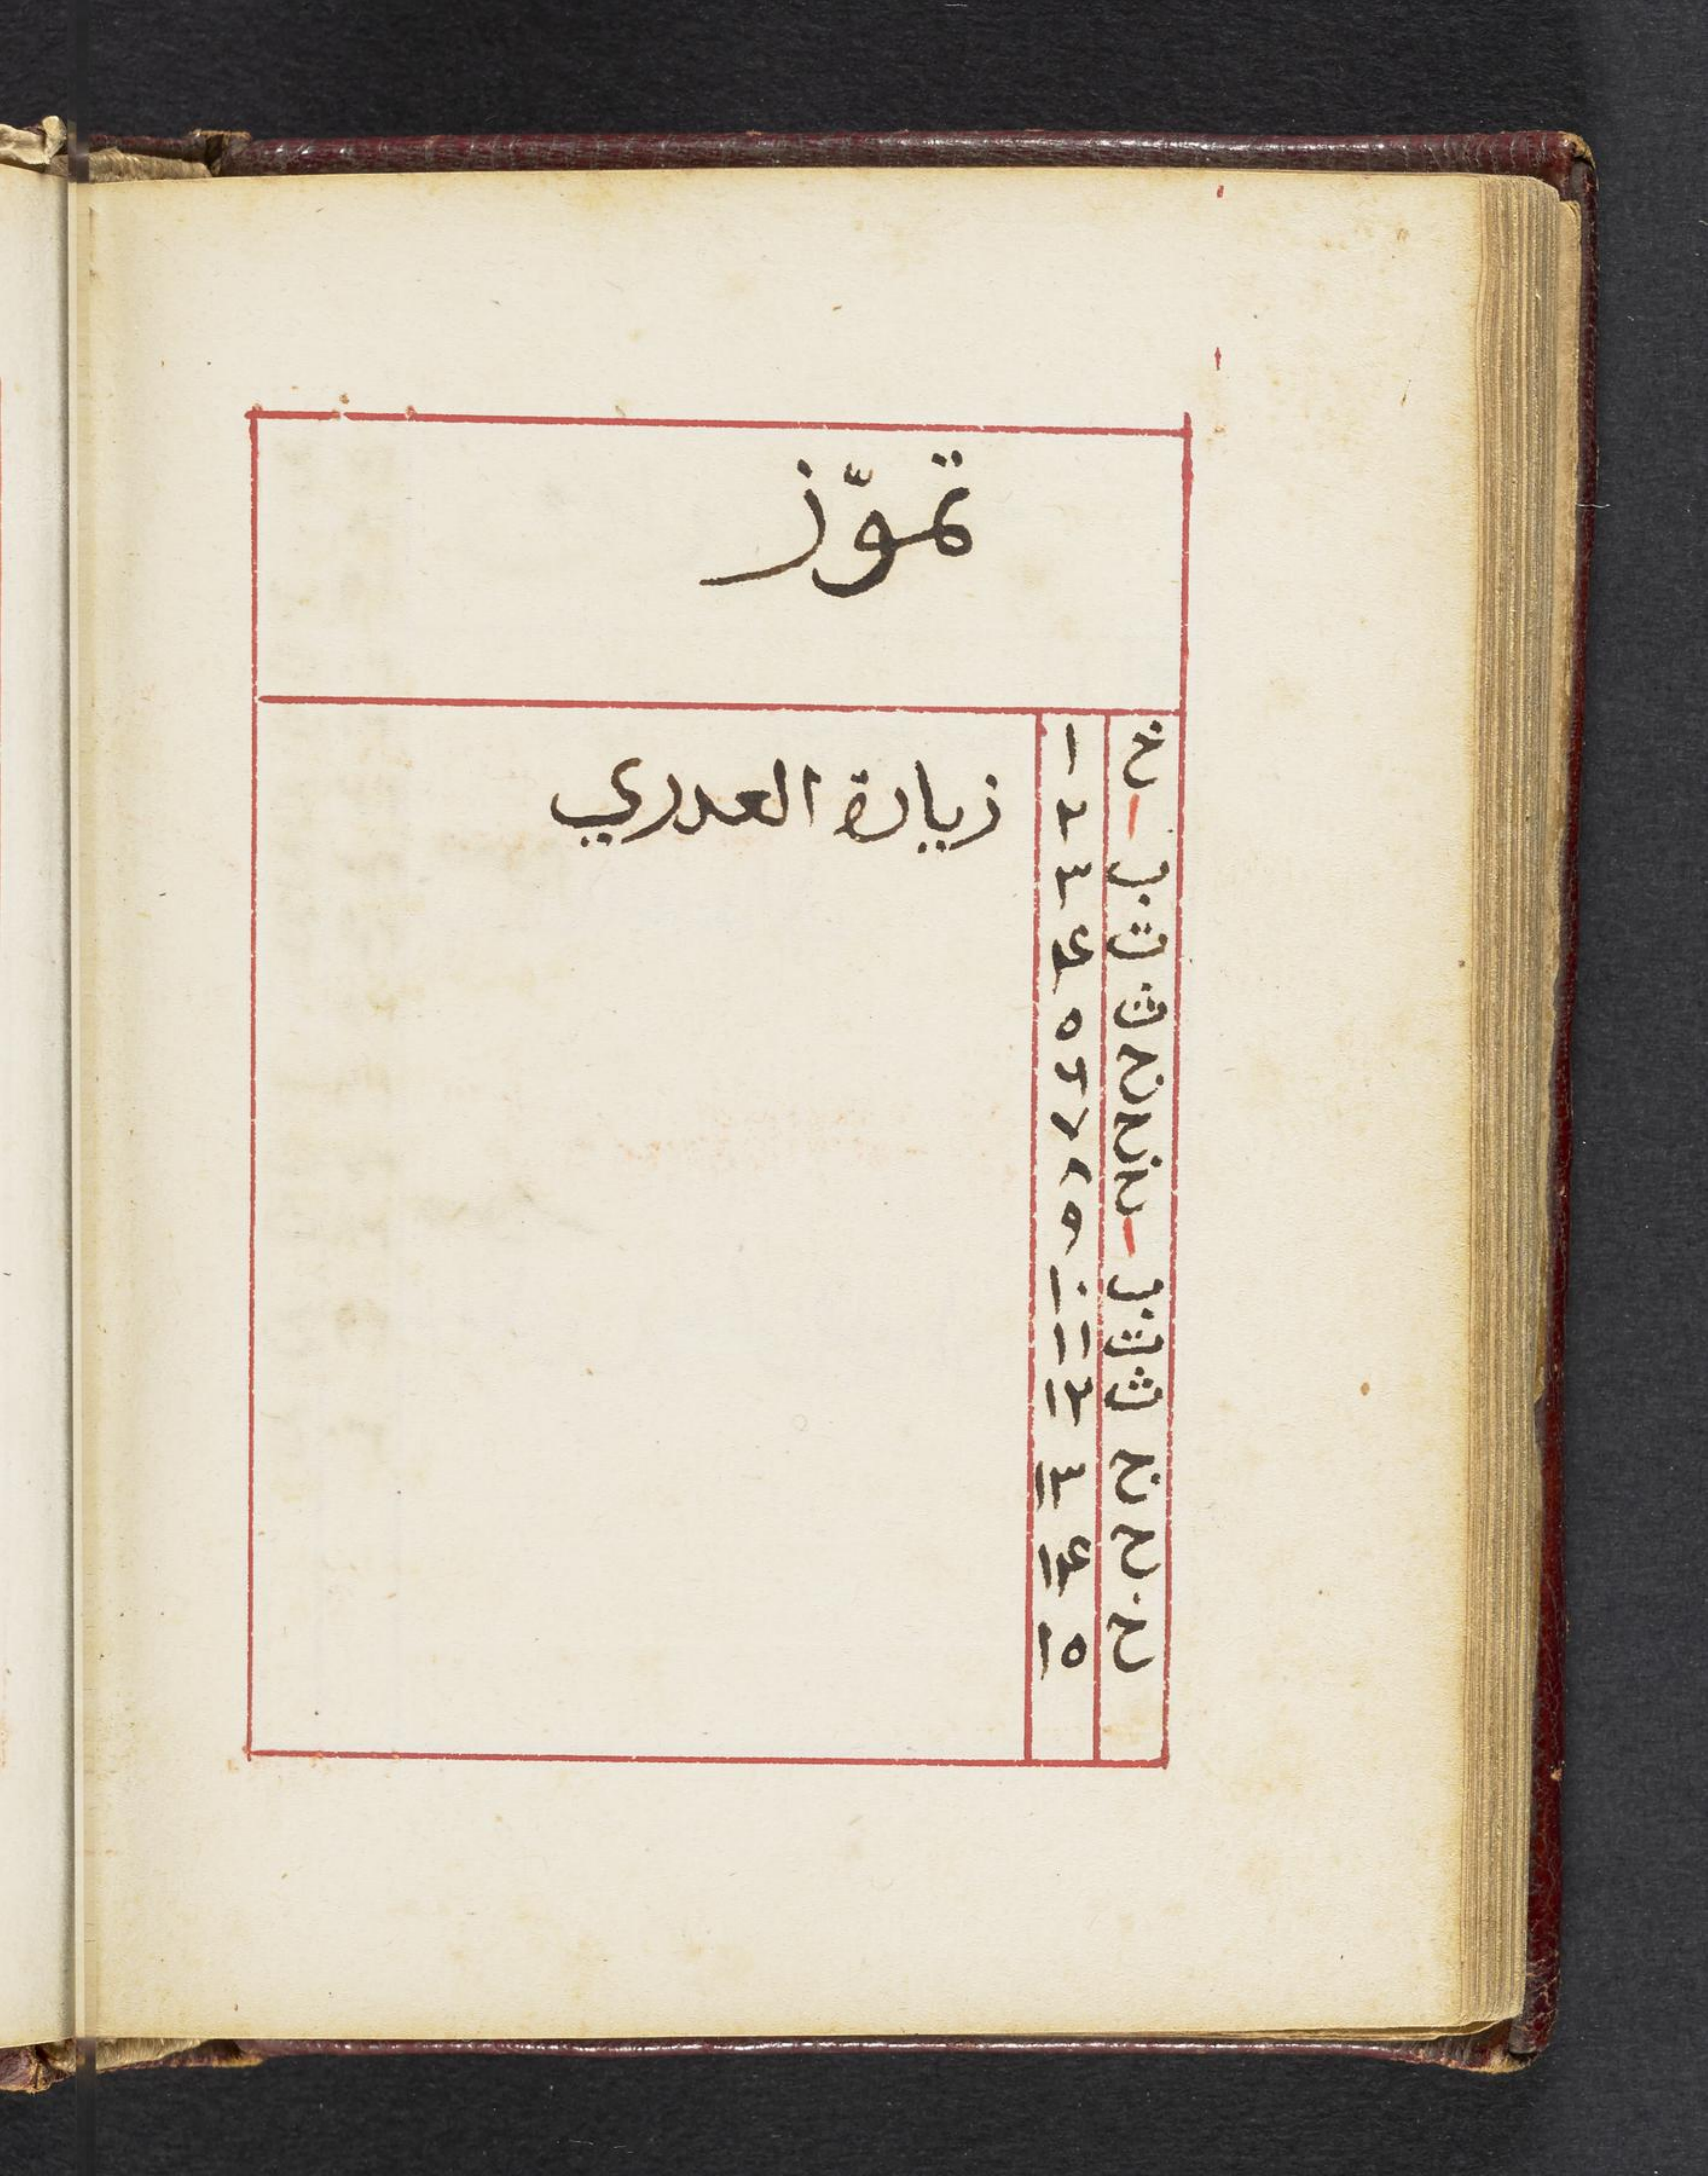 تموّز
خ ١
ا ٢ زيارة العدري
ب ٣
ت ۴
ث ٥
ج ٦
ح ٧
خ ٨
ا ٩
ب ١٠
ت ١١
ث ١٢
ج ١٣
ح ١۴
خ ١٥